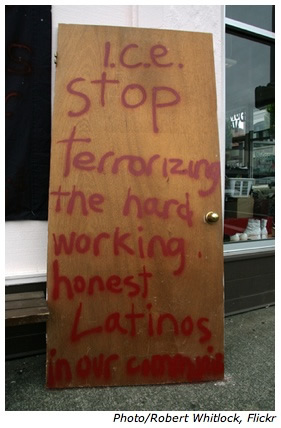 I.C.E.
stop
terrorizing
the hard
working.
honest
Latinos
in our
Photo/Robert Whitlock, Flickr